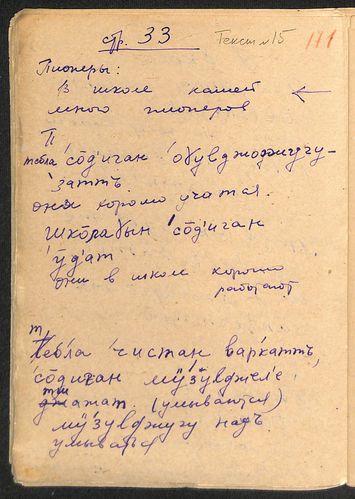 стр. 33 Текст №15 111
Пионеры:
В школе нашей
много пионеров
теблa со̄диган обувджоджугу-
затть.
они хорошо учатся.
школабын со̄диган
ӯдат
они в школе хорошо
работают
тебла чистан варкатть,
со̄диган мӱзӱвджеле
тшатат. (умываются)
мӱзӱвджугу надъ
умываться